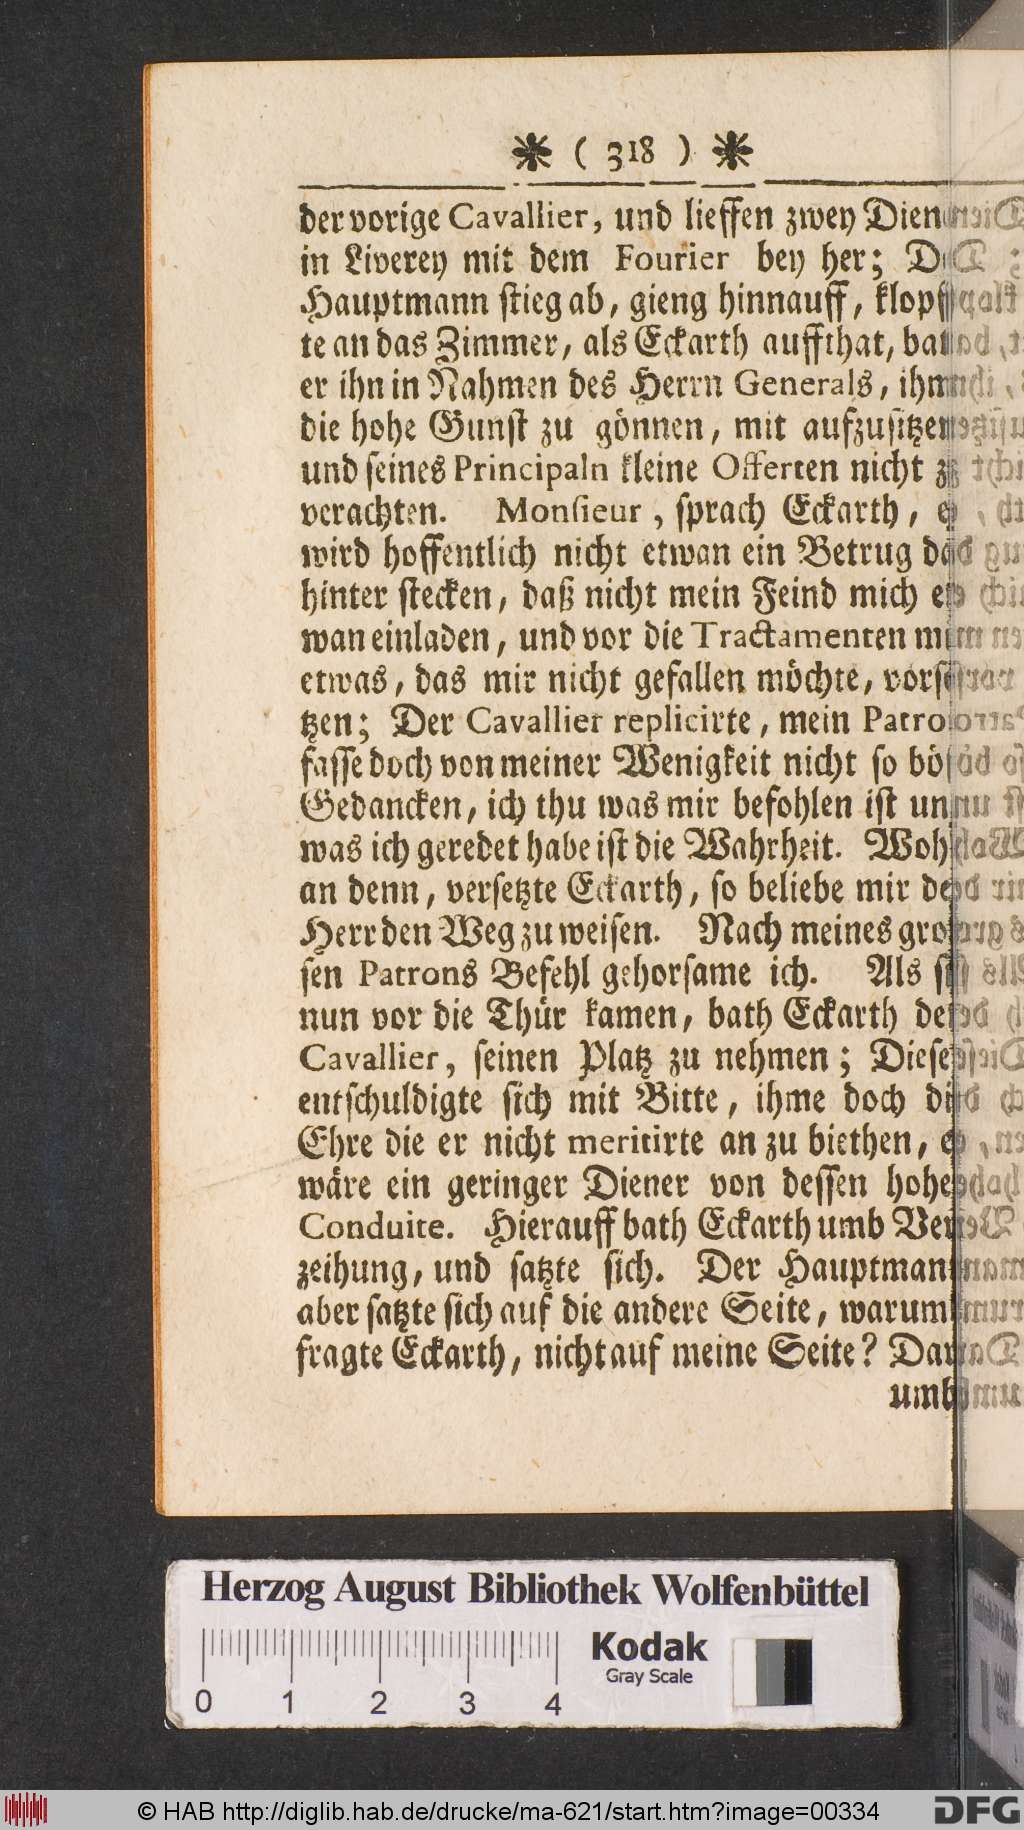 ❋ ( 318 ) ❋
der vorige Cavallier, und lieffen zwey Diener
in Liverey mit dem Fourier bey her; Der
Hauptmann stieg ab, gieng hinnauff, klopff-
te an das Zimmer, als Eckarth auffthat, bat
er ihn in Nahmen des Herrn Generals, ihm
die hohe Gunst zu gönnen, mit aufzusitzen
und seines Principaln kleine Offerten nicht zu
verachten. Monsieur, sprach Eckarth, es
wird hoffentlich nicht etwan ein Betrug da
hinter stecken, daß nicht mein Feind mich et-
wan einladen, und vor die Tractamenten mir
etwas, das mir nicht gefallen möchte, vorse-
tzen; Der Cavallier replicirte, mein Patron
fasse doch von meiner Wenigkeit nicht so böse
Gedancken, ich thu was mir befohlen ist und
was ich geredet habe ist die Wahrheit. Wohl
an denn, versetzte Eckarth, so beliebe mir der
Herr den Weg zu weisen. Nach meines gros-
sen Patrons Befehl gehorsame ich. Als sie
nun vor die Thür kamen, bath Eckarth den
Cavallier, seinen Platz zu nehmen; Dieser
entschuldigte sich mit Bitte, ihme doch die
Ehre die er nicht meritirte an zu biethen, er
wäre ein geringer Diener von dessen hohen
Conduite. Hierauff bath Eckarth umb Ver-
zeihung, und satzte sich. Der Hauptmann
aber satzte sich auf die andere Seite, warumb
fragte Eckarth, nicht auf meine Seite? Dar-
umb
Herzog August Bibliothek Wolfenbüttel
0 1 2 3 4
Kodak
Gray Scale
© HAB http://diglib.hab.de/drucke/ma-621/start.htm?image=00334
DFG